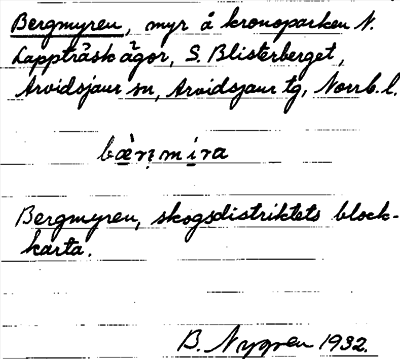 Bergmyren, myr å kronoparken N.
Lappträsk ägor, S. Blisterberget,
Arvidsjaur sn, Arvidsjaur tg, Norrb. l.
bæ̀rm̥mìra
Bergmyren, skogsdistriktets block-
karta.
B. Nygren 1932.